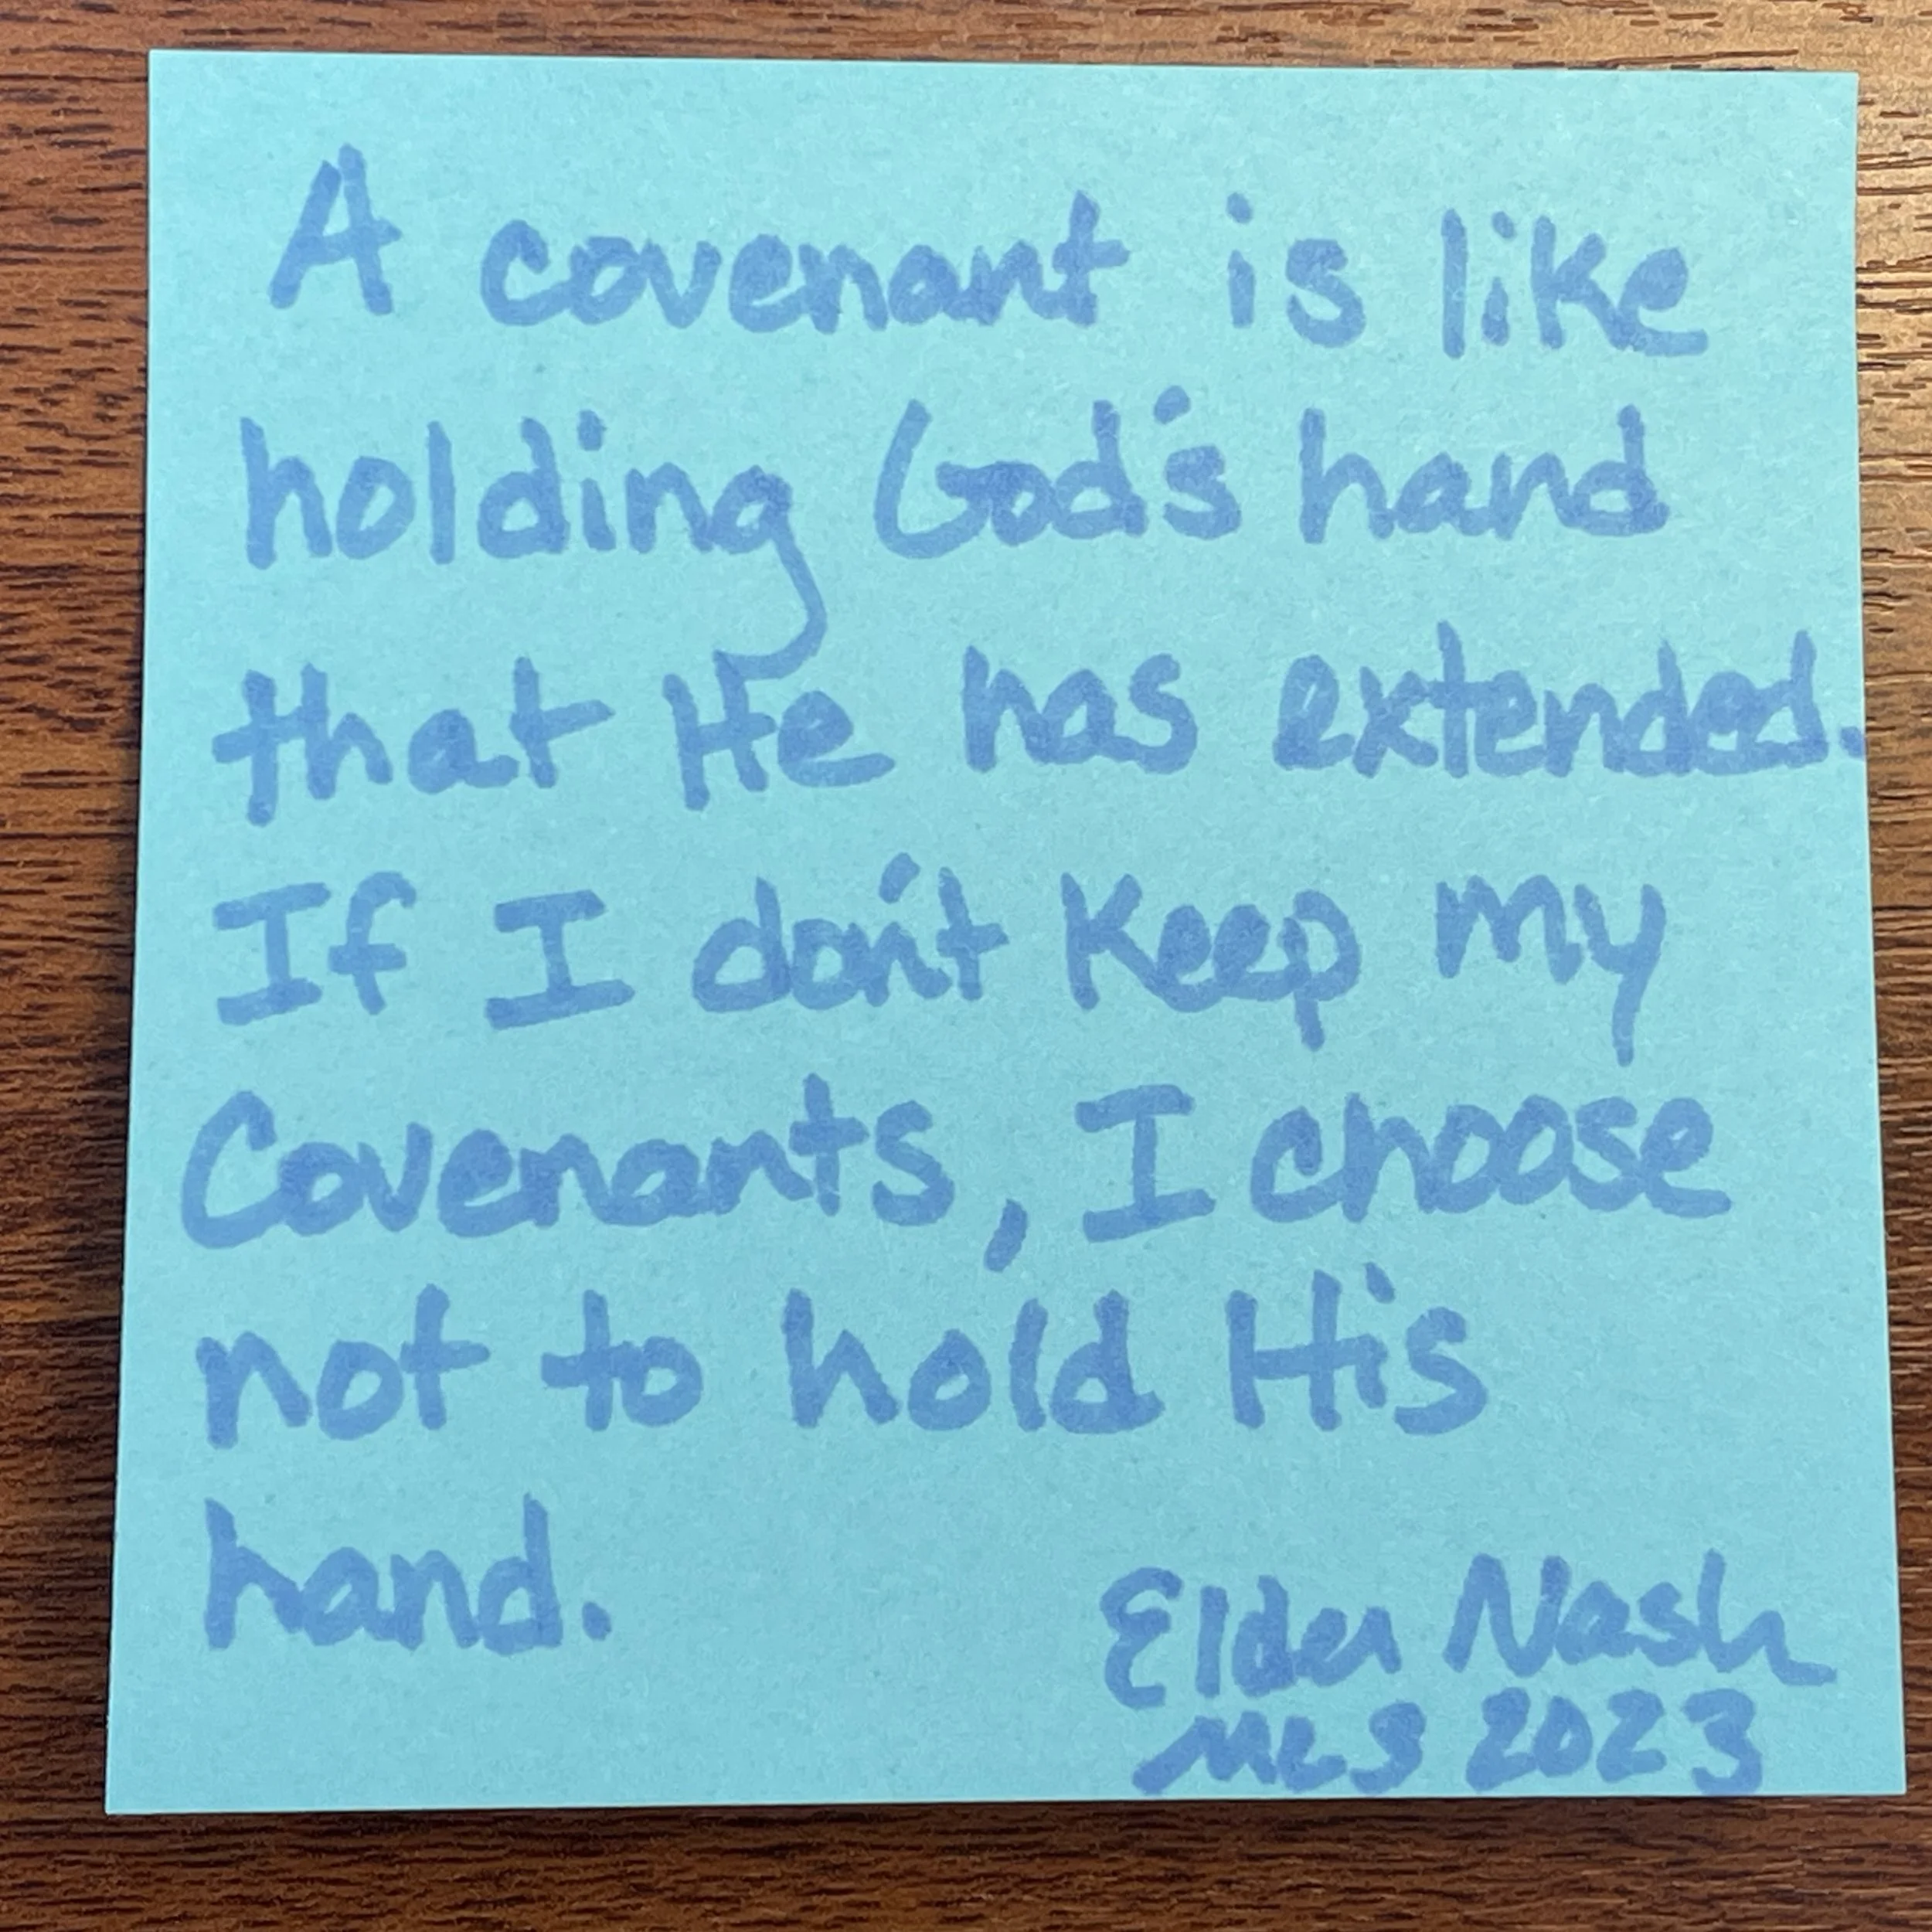 A covenant is like
holding God's hand
that He has extended.
If I don't keep my
Covenants, I choose
not to hold His
hand.
Elder Nash
MLS 2023